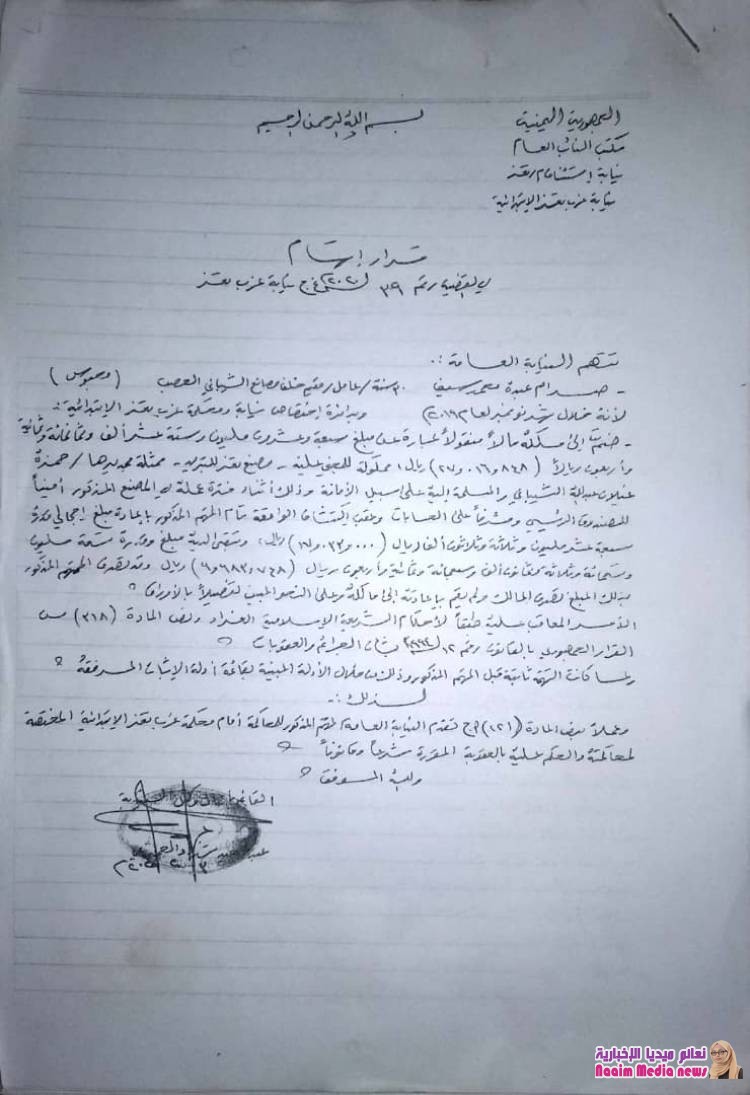 الجمهورية اليمنية
مكتب النائب العام
نيابة إستئناف م/تعز
نيابة غرب تعز الابتدائية
بسم الله الرحمن الرحيم
قرار إتهام
في القضية رقم ٣٩ لسنة ٢٠٢٠م غ ج نيابة غرب تعز
تتهم النيابة العامة :.
- صدام عبده محمد سيف ٣٠ سنة / عامل / مقيم خلف مصانع الشيباني الحصب (محبوس)
لأنه خلال شهر نوفمبر لعام ٢٠١٦م وبدائرة إختصاص نيابة ومحكمة غرب تعز الابتدائية :.
- ضم إلى ملكه مالاً منقولاً عبارة عن مبلغ سبعة وعشرون مليون وستة عشر ألف وثمانمائة وثمانية
وأربعون ريالاً (٢٧,٠١٦,٨٤٨) ريال، مملوكة للمجني عليه - مصنع تعز للتبريد - ممثلة بمديرها / حمزة
عبدالله الشيباني والمسلمة إليه على سبيل الأمانة وذلك أثناء فترة عمله لدى المصنع المذكور أميناً
للصندوق الرئيسي ومشرفاً على الحسابات وعقب إكتشاف الواقعة قام المتهم المذكور بإعادة مبلغ إجمالي وقدره
سبعة عشر مليون وثلاثة وثلاثون ألف ريال (١٧,٠٣٣,٠٠٠) ريال، وتبقى لديه مبلغ وقدره تسعة مليون
وستمائة وثلاثة وثمانون ألف وسبعمائة وثمانية وأربعون ريال (٩,٦٨٣,٧٤٨) ريال وقد تصدى المتهم المذكور
بذلك المبلغ تصدى المالك ولم يقم بإعادته إلى مالكه وعلى النحو المبين تفصيلاً بالأوراق
الأمر المعاقب عليه طبقاً لأحكام الشريعة الإسلامية الغراء ونص المادة (٣١٨) من
القرار الجمهوري بالقانون رقم ١٢ لسنة ١٩٩٤م بشأن الجرائم والعقوبات
ولما كانت التهمة ثابتة قبل المتهم المذكور وذلك من خلال الأدلة المبينة بقائمة أدلة الإثبات المرفقة
لذلك :.
وعملاً بنص المادة (٢٢١) أ.ج تقدم النيابة العامة المتهم المذكور للمحاكمة أمام محكمة غرب تعز الابتدائية المختصة
لمحاكمته والحكم عليه بالعقوبة المقررة شرعاً وقانوناً
والله الموفق
القائم بأعمال وكيل النيابة
نعائم ميديا الإخبارية
Naaim Media news